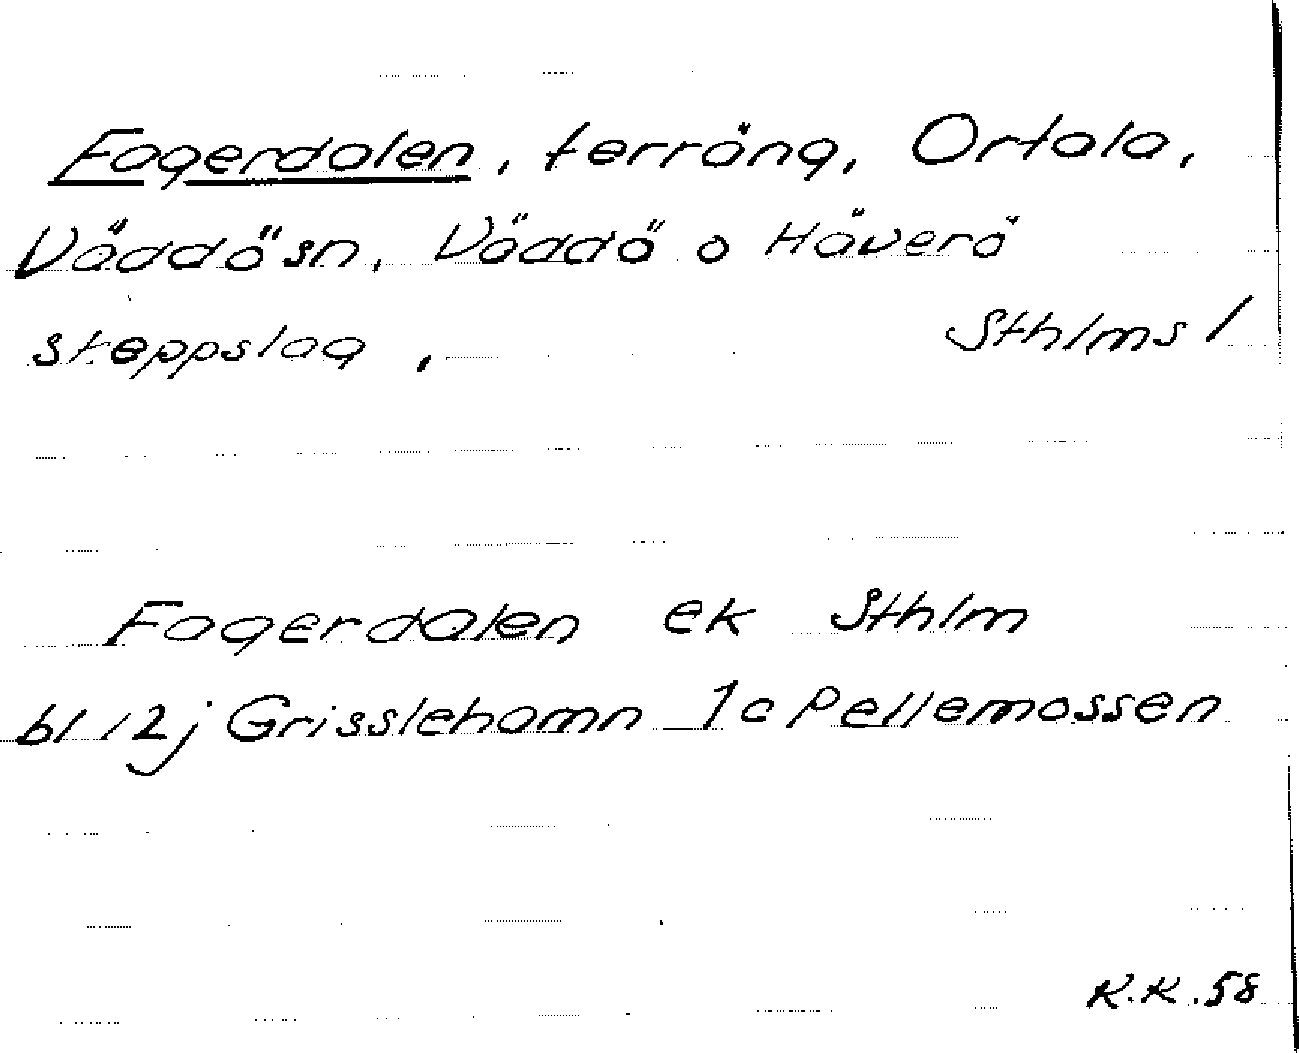 Fagerdalen, terräng, Ortala,
Väddö sn, Väddö o Häverö
skeppslag, Sthlms l
Fagerdalen ek Sthlm
bl 12j Grisslehamn 1c Pellemossen
K.K.58